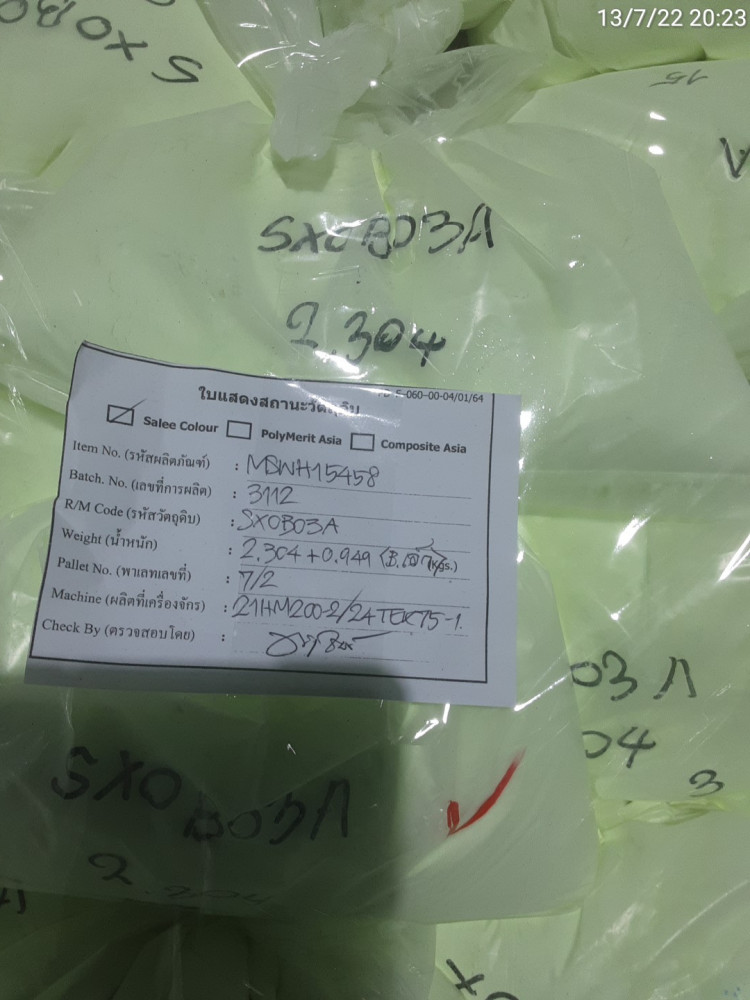 13/7/22 20:23
SXOB
15
SXOB03A
2.304
-060-00-04/01/64
ใบแสดงสถานะวัตถุดิบ
Salee Colour PolyMerit Asia Composite Asia
Item No. (รหัสผลิตภัณฑ์) : MSWH15458
Batch. No. (เลขที่การผลิต) : 3112
R/M Code (รหัสวัตถุดิบ) : SXOB03A
Weight (น้ำหนัก) : 2.304 + 0.949 Kgs.)
Pallet No. (พาเลทเลขที่) : 7/2
Machine (ผลิตที่เครื่องจักร) : 21HM200-2/24TEK75-1.
Check By (ตรวจสอบโดย) :
03A
04
3
SXOB03A